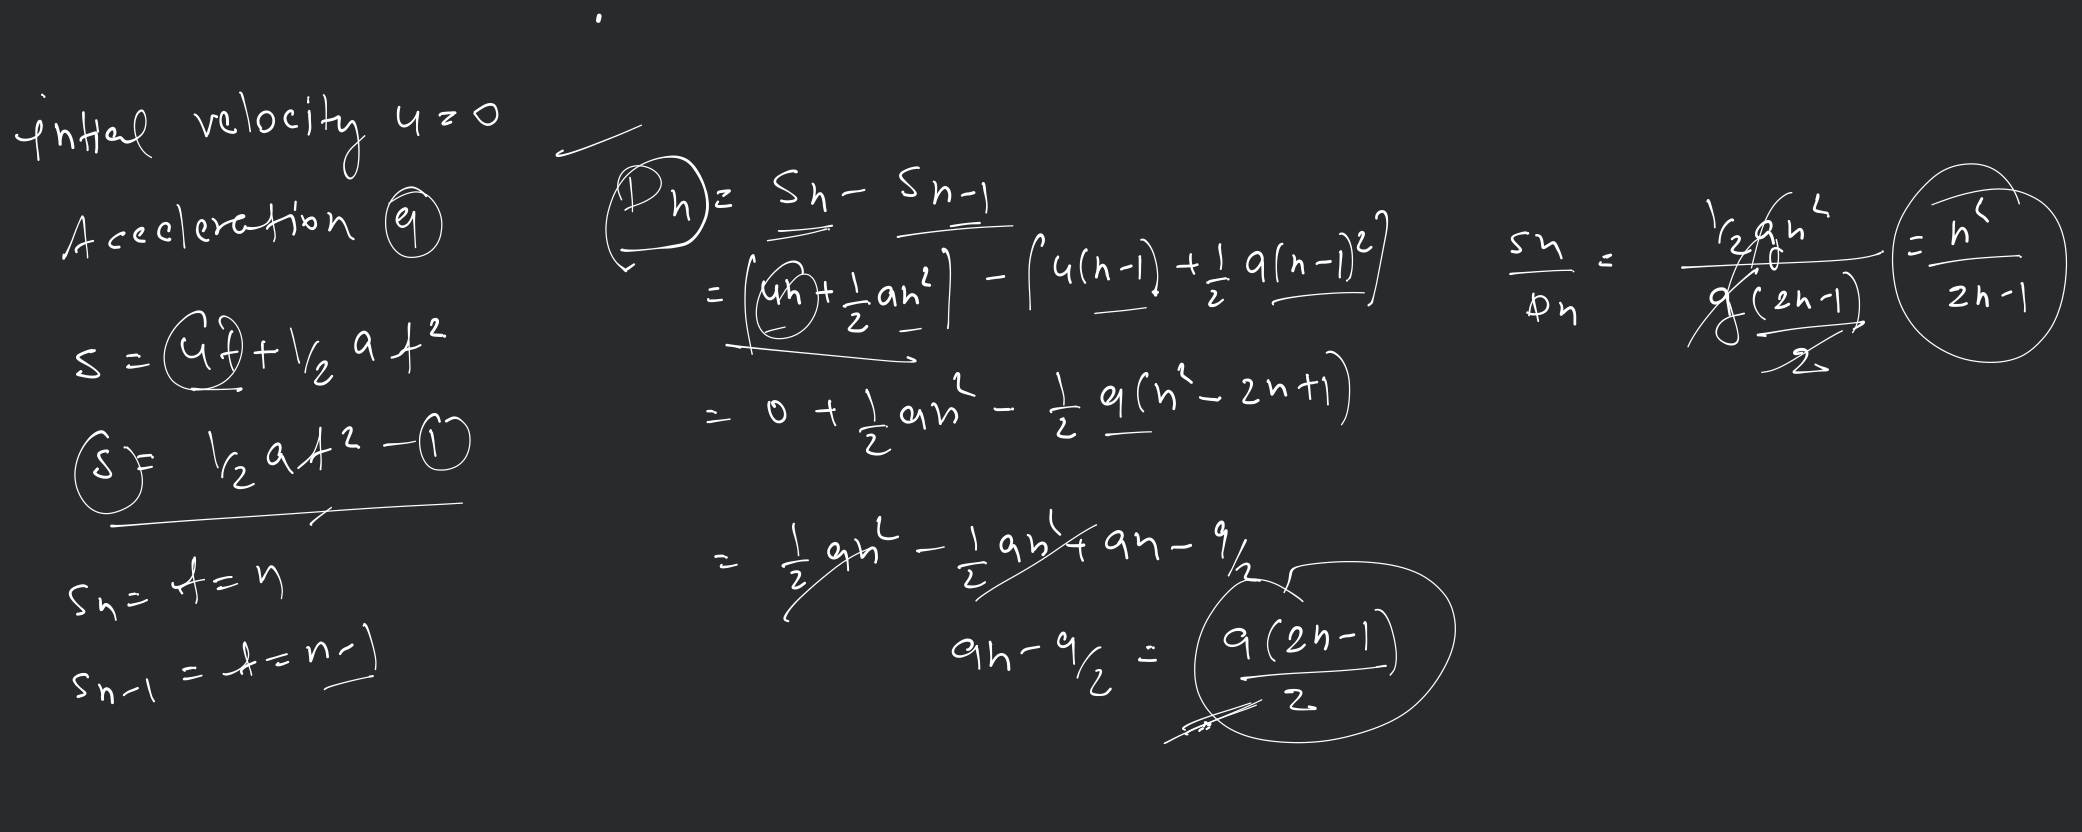 initial velocity u = 0
Acceleration a
S = ut + 1/2 at²
S = 1/2 at² - ①
Sn = t = n
Sn-1 = t = n-1
Dn = Sn - Sn-1
= [un + 1/2 an²] - [u(n-1) + 1/2 a(n-1)²]
= 0 + 1/2 an² - 1/2 a(n² - 2n + 1)
= 1/2 an² - 1/2 an² + an - a/2
an - a/2 = a(2n-1)/2
Sn/Dn = (1/2 an²)/(a(2n-1)/2) = n²/(2n-1)